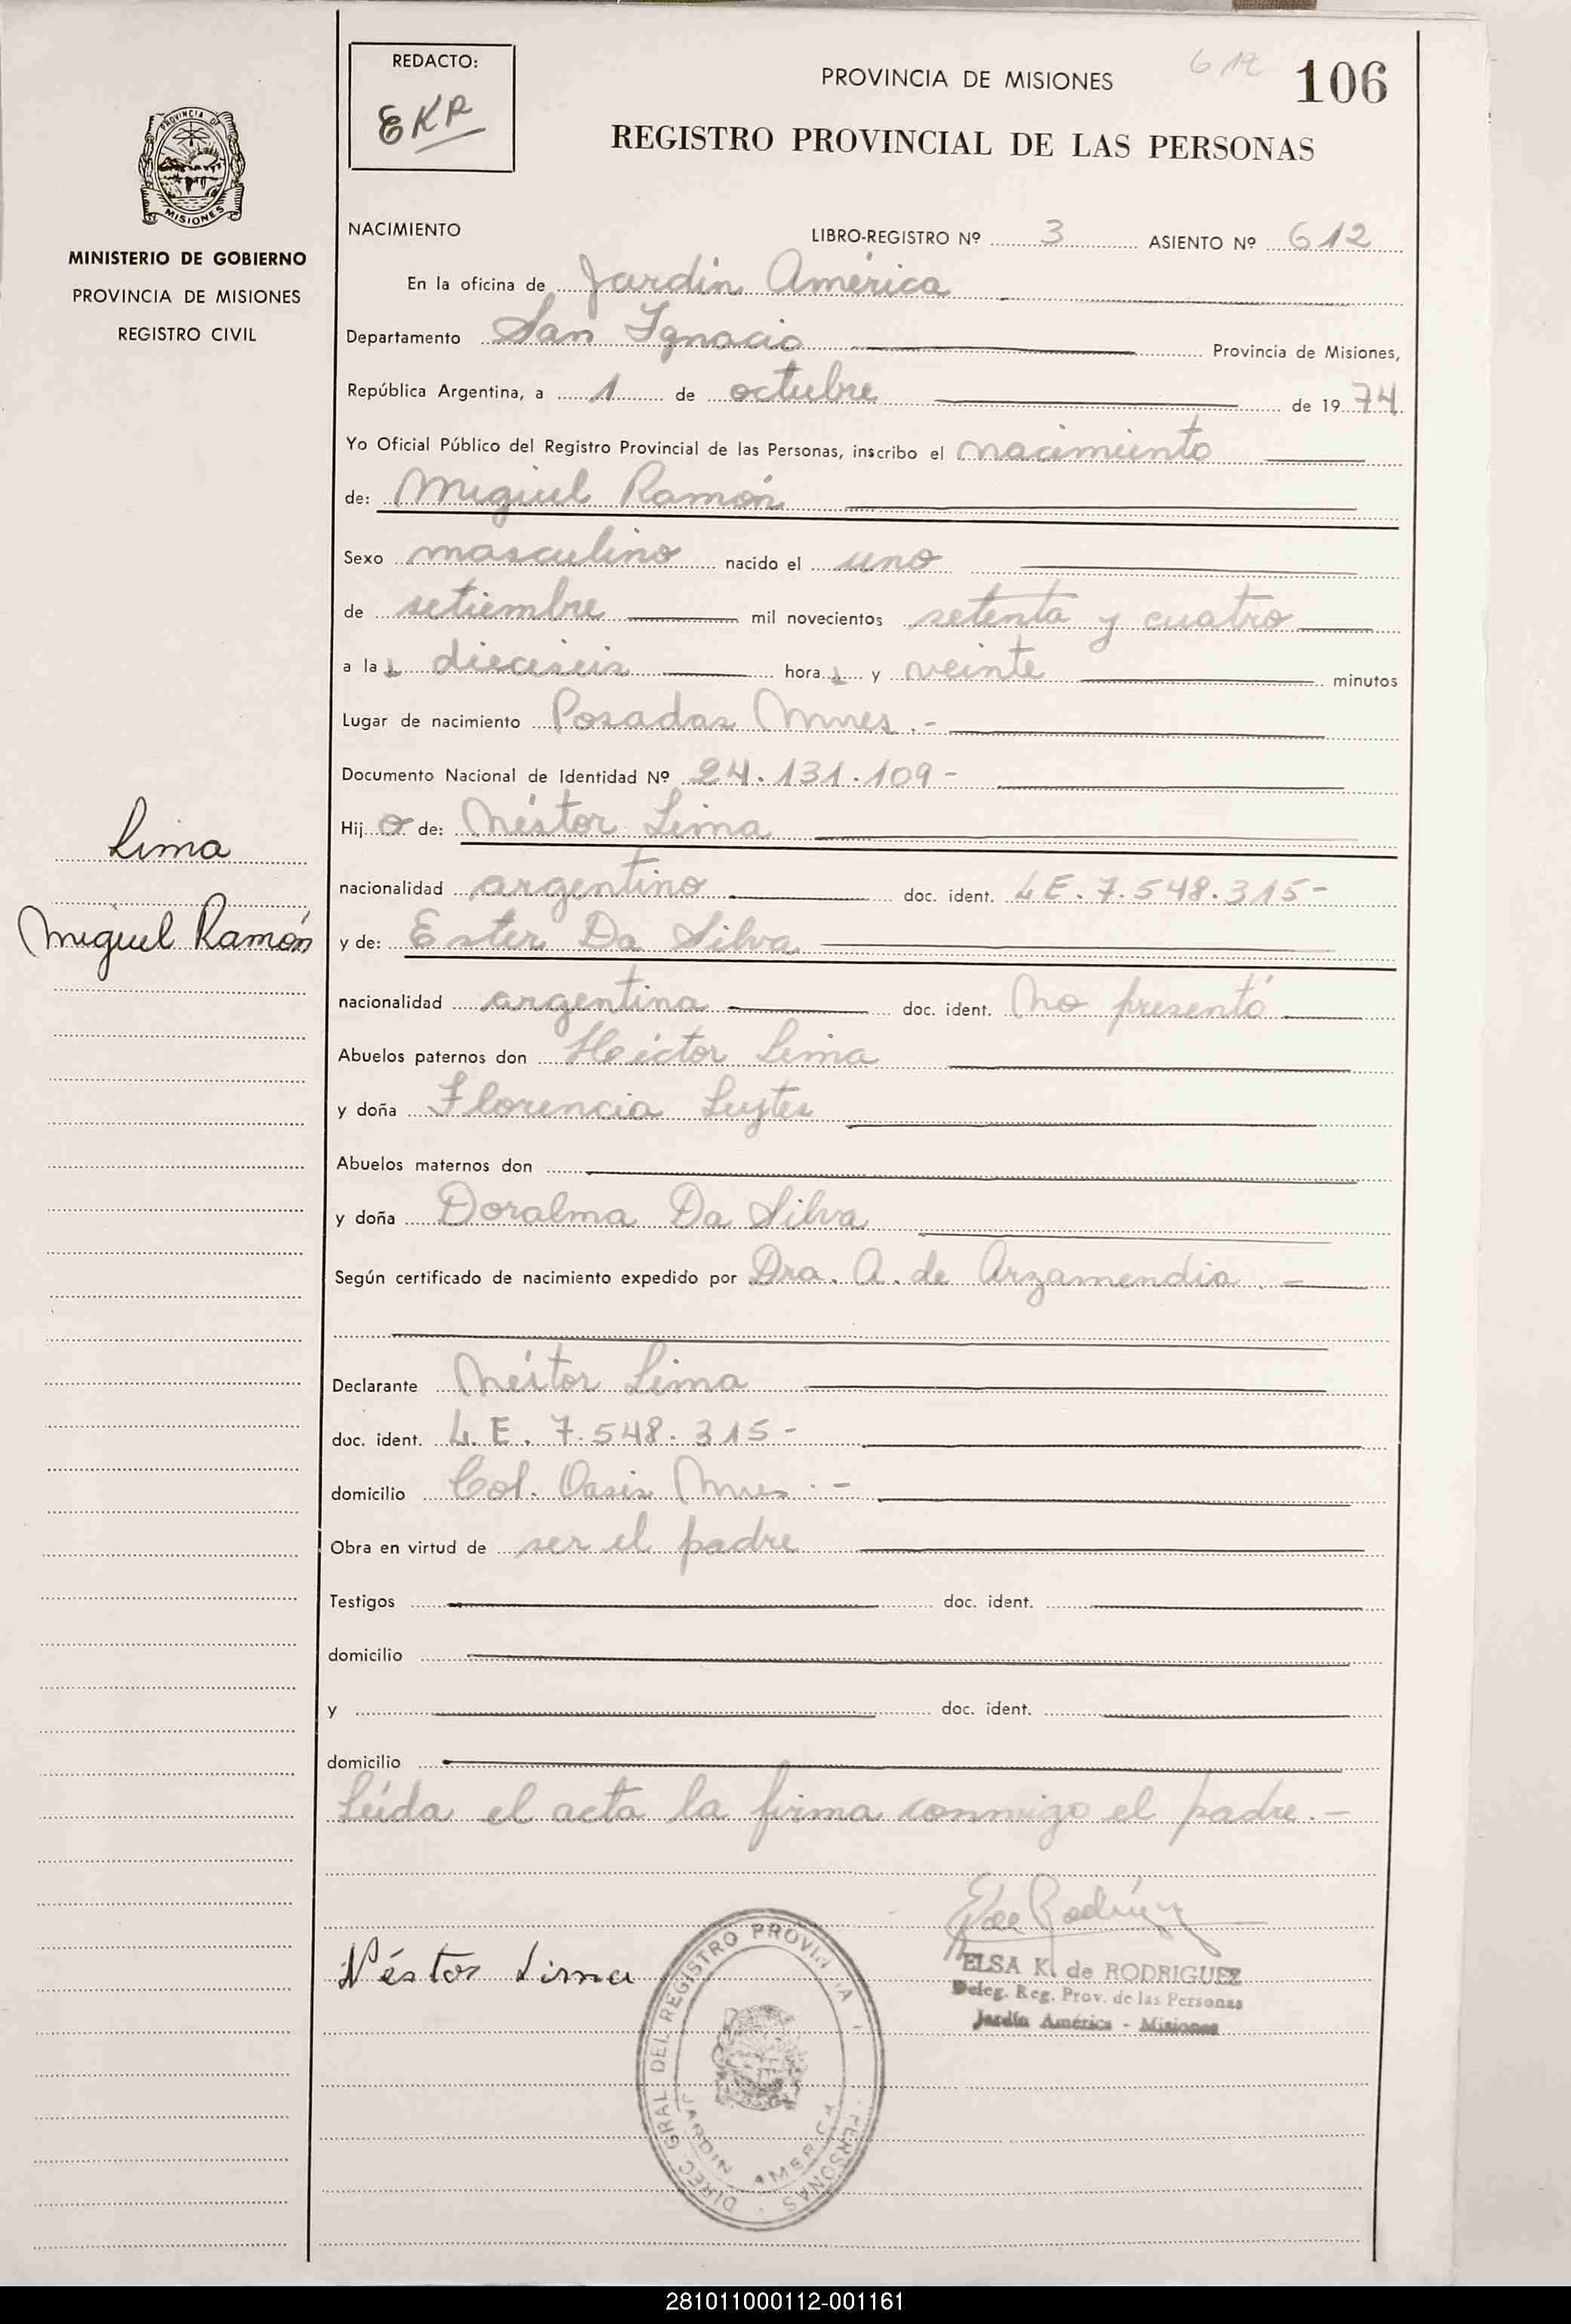 REDACTO:
EKR
PROVINCIA DE MISIONES
612
106
REGISTRO PROVINCIAL DE LAS PERSONAS
PROVINCIA DE
MISIONES
MINISTERIO DE GOBIERNO
PROVINCIA DE MISIONES
REGISTRO CIVIL
NACIMIENTO
LIBRO-REGISTRO Nº 3 ASIENTO Nº 612
En la oficina de Jardín América
Departamento San Ignacio Provincia de Misiones,
República Argentina, a 1 de octubre de 1974
Yo Oficial Público del Registro Provincial de las Personas, inscribo el nacimiento
de: Miguel Ramón
Sexo masculino nacido el uno
de setiembre mil novecientos setenta y cuatro
a las dieciseis horas y veinte minutos
Lugar de nacimiento Posadas Mnes.-
Documento Nacional de Identidad Nº 24.131.109-
Hijo de: Néstor Lima
nacionalidad argentino doc. ident. L.E. 7.548.315-
y de: Ester Da Silva
nacionalidad argentina doc. ident. No presentó
Abuelos paternos don Héctor Lima
y doña Florencia
Abuelos maternos don
y doña Doralma Da Silva
Según certificado de nacimiento expedido por Dra. A. de Arzamendia.-
Declarante Néstor Lima
doc. ident. L.E. 7.548.315-
domicilio Col. Oasis Mnes.-
Obra en virtud de ser el padre
Testigos doc. ident.
domicilio
y doc. ident.
domicilio
Leída el acta la firma conmigo el padre.-
Lima
Miguel Ramón
Néstor Lima
ELSA K. de RODRIGUEZ
Deleg. Reg. Prov. de las Personas
Jardín América - Misiones
DIREC. GRAL DEL REGISTRO PROVIN PERSONAS
JARDIN AMERICA
281011000112-001161